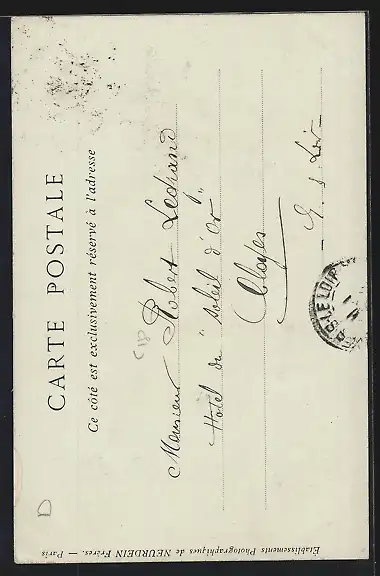 CARTE POSTALE
Ce côté est exclusivement réservé à l'adresse
Monsieur Robert Lechand
Hotel du "Soleil d'Or"
Cloyes
E. & Loir
S-LE-LOIR
Établissements Photographiques de NEURDEIN Frères. — Paris
D